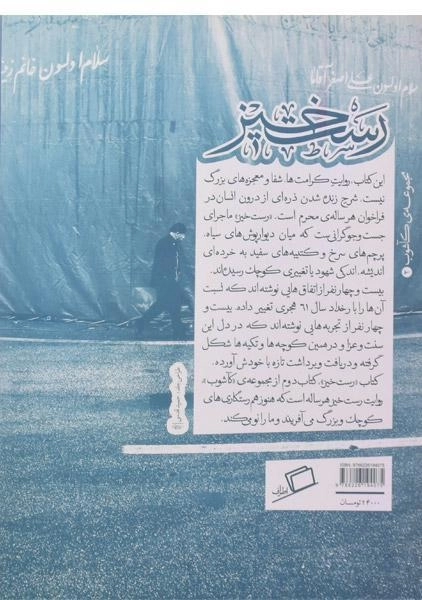 سلام اولسون خانم زینب
سلام اولسون علی اصغر آقاما
رستخیز
این کتاب، روایت کرامت‌ها، شفا و معجزه‌های بزرگ
نیست. شرح زنده شدن ذره‌ای از درون انسان در
فراخوان هرساله‌ی محرم است. «رستخیز» ماجرای
جست‌وجوگرانی‌ست که میان دیوارپوش‌های سیاه،
پرچم‌های سرخ و کتیبه‌های سفید به خرده‌ای
اندیشه، اندکی شهود یا تغییری کوچک رسیده‌اند.
بیست و چهار نفر از اتفاق‌هایی نوشته‌اند که نسبت
آن‌ها را با رخداد سال ۶۱ هجری تغییر داده. بیست و
چهار نفر از تجربه‌هایی نوشته‌اند که در دل این
سنت و عزا و در همین کوچه‌ها و تکیه‌ها شکل
گرفته و دریافت و برداشت تازه با خودش آورده.
کتاب «رستخیز»، کتاب دوم از مجموعه‌ی «کآشوب»،
روایت رستخیز هرساله است که هنوز هم رستگاری‌های
کوچک و بزرگ می‌آفریند و ما را نو می‌کند.
مجموعه‌ی کآشوب ۲
اطراف
ISBN: 9786226194075
9 786226 194075
۲۴۰۰۰ تومان